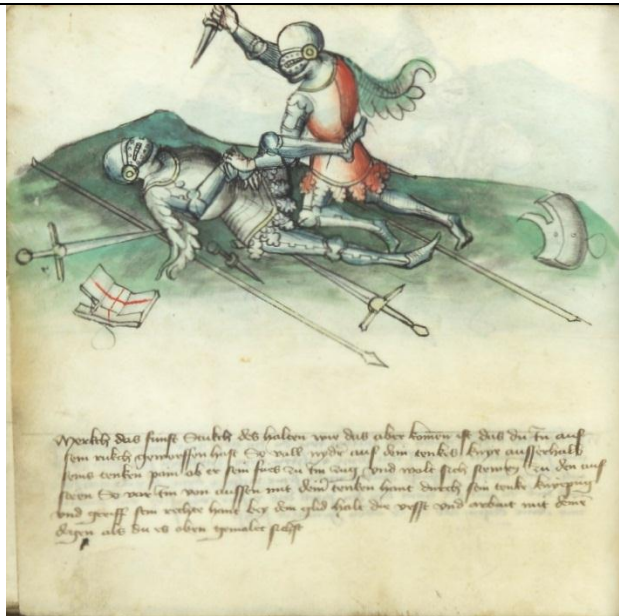 Merckh das funft Stuckh des halten wie das aber komen ist das du in auf
sein rukch geworffen hast So vall nyder auf dein tenkes knye ausserhalb
seins tenken pain ob er sein fues zu im zug und wolt sich stewren zu den auf
sten So var im von aussen mit deiner tenken hant durch sein tenke kniepug
und greiff sein rechte hant bey dem glid halt die vesst und arbait mit deine
degen als du es oben gemalet sichst